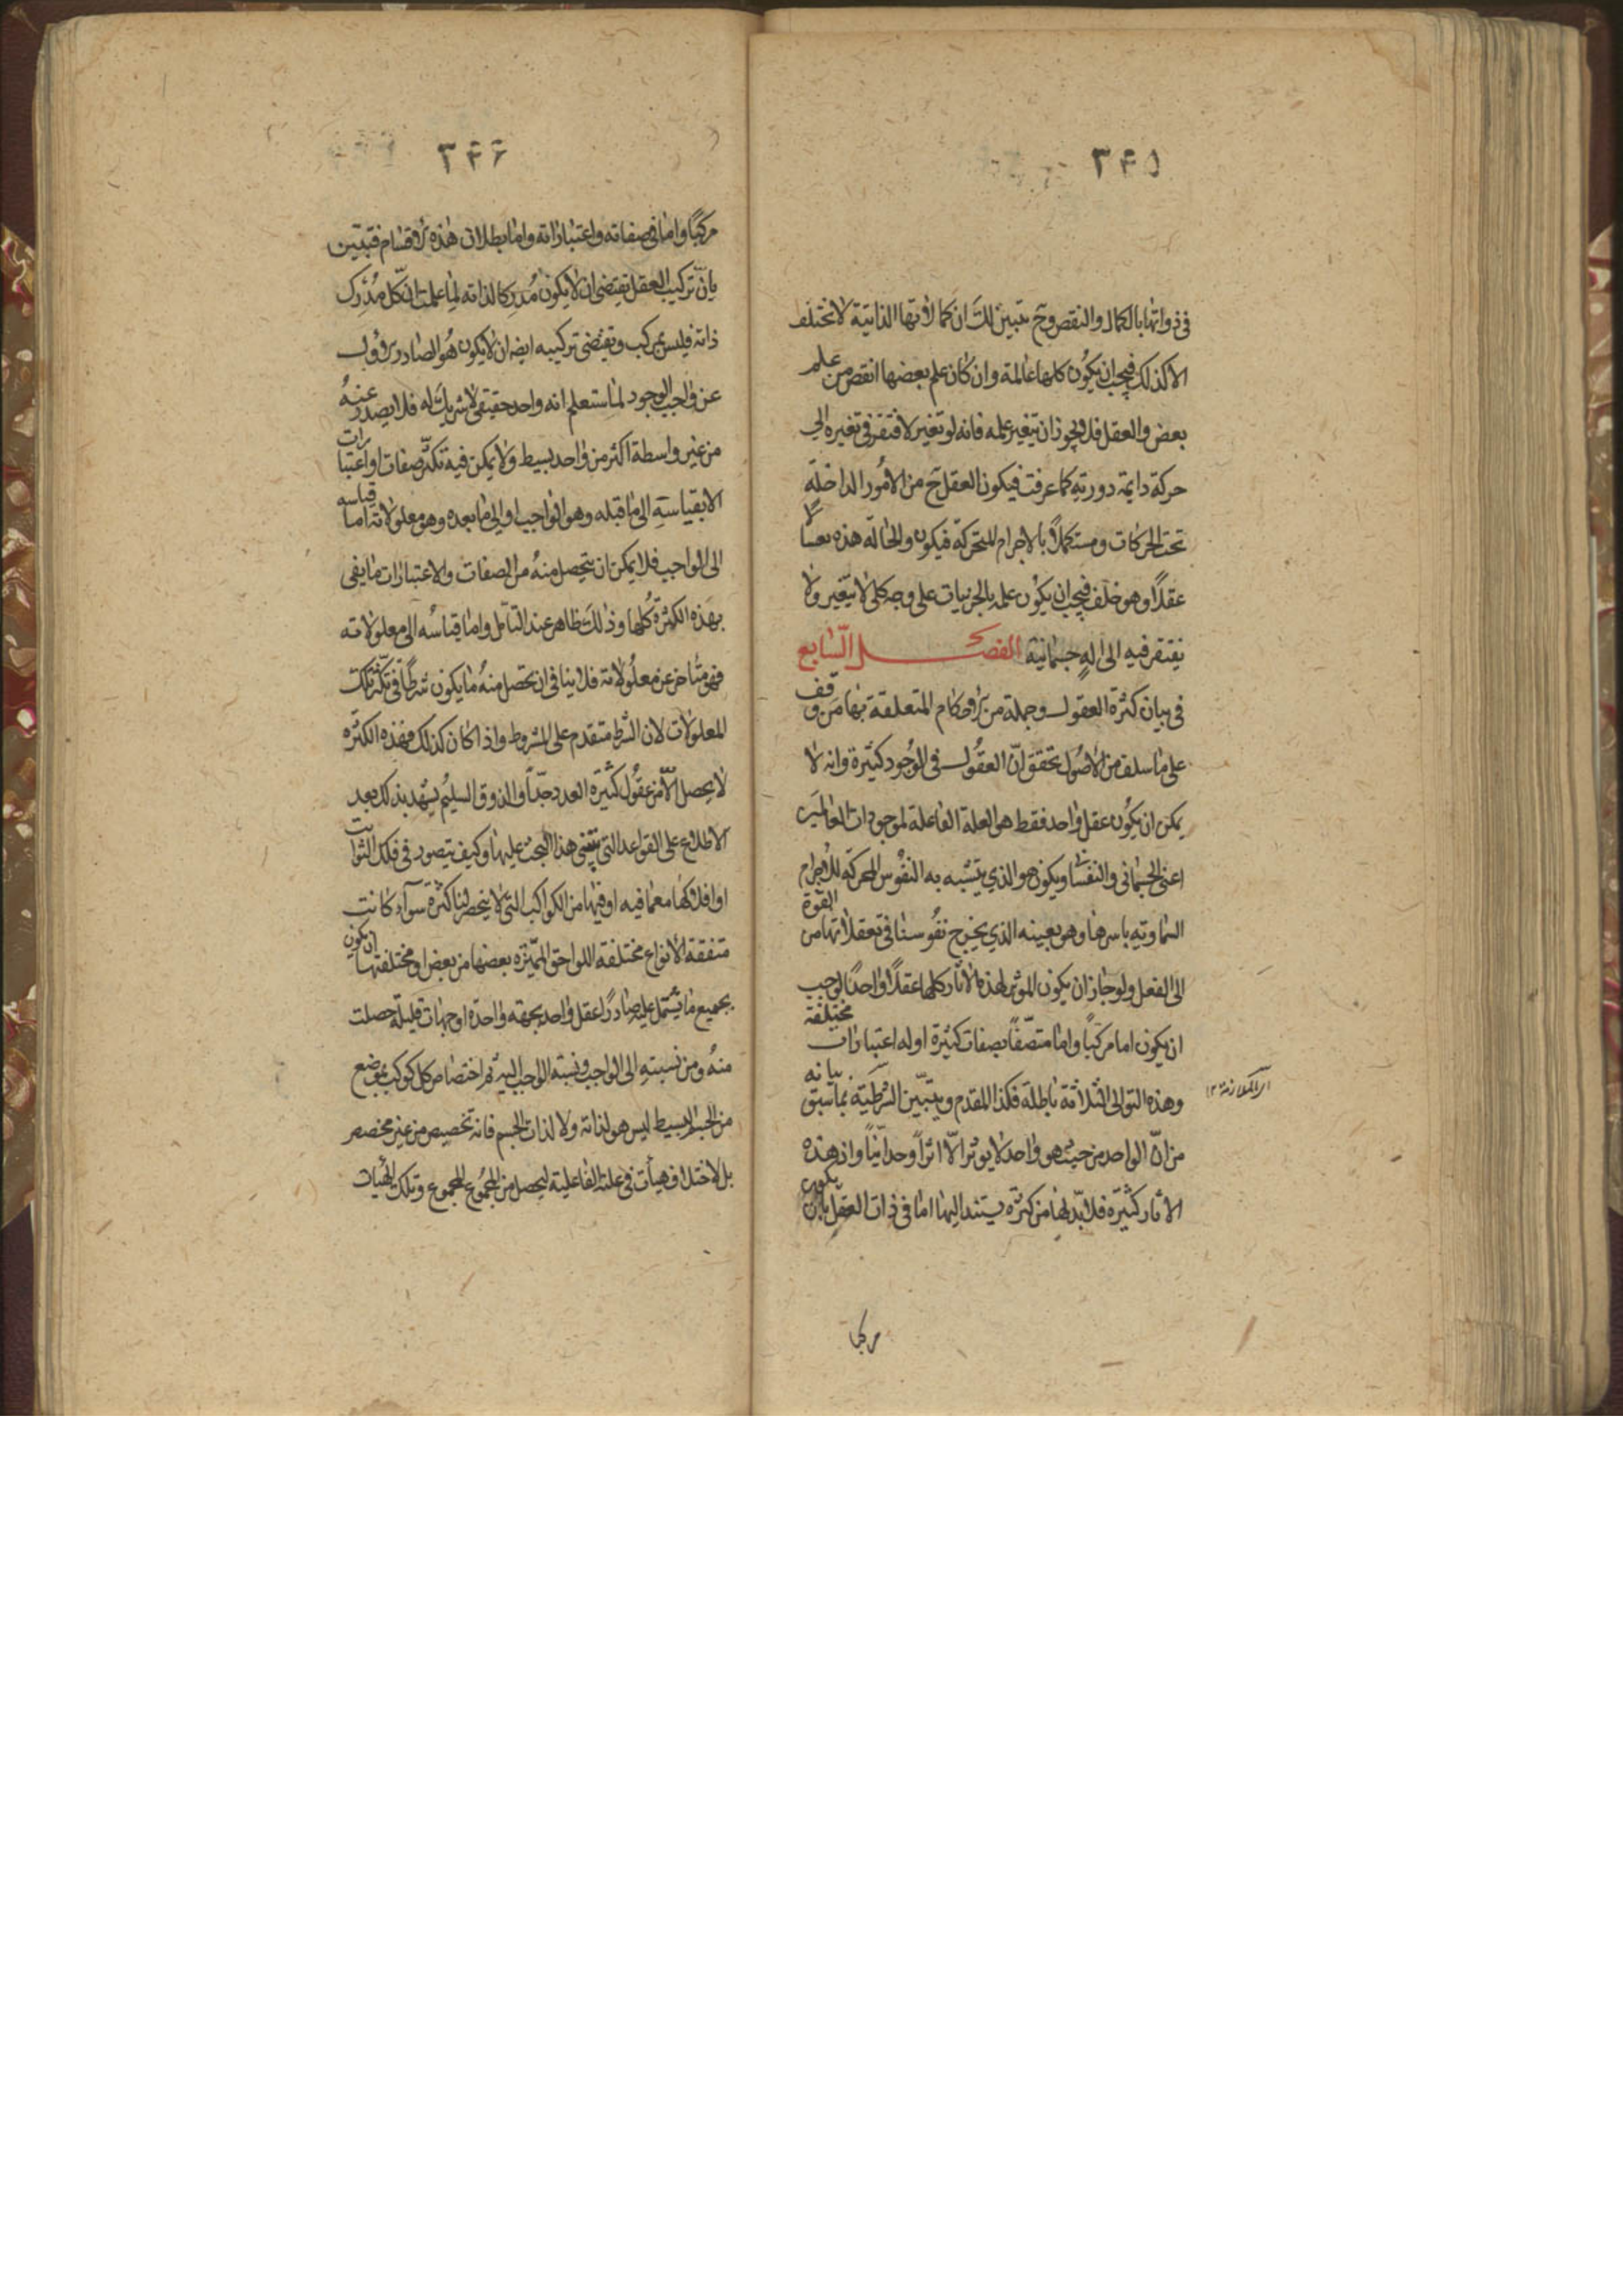 ٣۴۵
في ذواتها بالكمال والنقص وح يتبين لك ان كمالاتها الذاتية لا تختلف
الا كذلك فيجب ان يكون كلها عالمة وان كان علم بعضها انقص من علم
بعض والعقل فلا يجوز ان يتغير علمه فانه لو تغير لافتقر في تغيره الى
حركة دايمة دورية كما عرفت فيكون العقل ح من الامور الداخلة
تحت الحركات ومستكملاً بالاجرام المتحركة فيكون والحالة هذه نفسا لا
عقلاً وهو خلف فيجب ان يكون علمه بالجزئيات على وجه كلى لا يتغير ولا
يفتقر فيه الى الة جسمانية الفصل السابع
في بيان كثرة العقول وجملة من الاحكام المتعلقة بها من وقف
على ما سلف من الاصول تحقق انّ العقول في الوجود كثيرة وانه لا
يمكن ان يكون عقل واحد فقط هو العلة الفاعلة لموجودات العالمين
اعنى الجسماني والنفساني ويكون هو الذي يتشبه به النفوس المحركة للاجرام
السماوية باسرها وهو بعينه الذي يخرج نفوسنا في تعقلاتها من القوة
الى الفعل ولو جاز ان يكون الموثر لهذه الاثار كلها عقلاً واحدًا لوجب
ان يكون اما مركبًا واما متصّفًا بصفات كثيرة او له اعتبارات مختلفة
وهذه التوالى الثلاثة باطلة فكذا المقدم ويتبيّن الشرطية بما سبق بيانه
اى الملازمة ١٢
من انّ الواحد من حيث هو واحد لا يوثر الّا اثراً وحدانيّاً واذ هذه
الاثار كثيرة فلا بدّ لها من كثرة يستند اليها اما في ذات العقل بان يكون
مركبا
٣۴۶
مركبًا واما في صفاته واعتباراته واما بطلان هذه الاقسام فتبتين
بانّ تركيب العقل يقتضى ان لا يكون مُدرِكا لذاته لِما علمت انّ كل مُدرِك
ذاته فليس بمركب وتقتضى تركيبه ايضه ان لا يكون هو الصادر الاول
عن واجب الوجود لما ستعلم انه واحد حقيقى لا شريك له فلا يصدر عنه
من غير واسطة اكثر من واحد بسيط ولا يمكن فيه تكثّر صفات او اعتبارات
الا بقياسه الى ما قبله وهو الواجب او الى ما بعده وهو معلولاته اما قياسه
الى الواجب فلا يمكن ان يتحصل منه من الصفات والاعتبارات ما يفى
بهذه الكثرة كلها وذلك ظاهر عند التامل واما قياسه الى معلولاته
فهو متاخر عن معلولاته فلا ينافى ان تحصل منه ما يكون شرطًا في تكثّر تلك
المعلولات لان الشرط متقدم على المشروط واذا كان كذلك فهذه الكثرة
لا يحصل الّا من عقول كثيرة العدد جدّاً والذوق السليم يشهد بذلك بعد
الاطلاع على القواعد التى يبتنى هذا البحث عليها وكيف يتصور في فلك الثوابت
او افلاكها معما فيه او فيها من الكواكب التى لا ينحصر لنا كثرة سوآء كانت
متفقة الانواع مختلفة اللواحق المميّزة بعضها من بعض او مختلفتها ان يكون
بجميع ما يشتمل عليه صادرًا عقل واحد بجهة واحدة او جهات قليلة حصلت
منه ومن نسبته الى الواجب ونسبة الواجب اليه ثم اختصاص كل كوكب بموضع
من الجسم البسيط ليس هو لذاته ولا لذات الجسم فانه تخصيص من غير مخصص
بل لاختلاف هيأت في علته الفاعلية ليحصل من المجموع المجموع وتلك الهيات